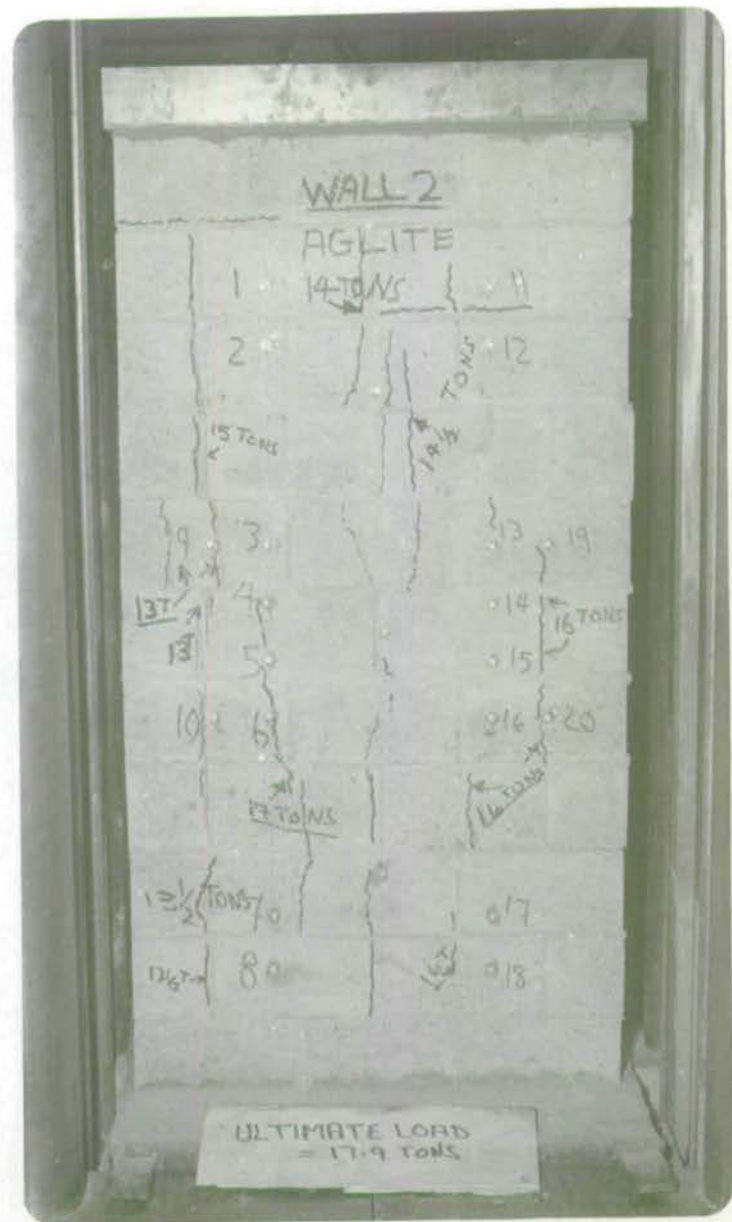 WALL 2
AGLITE
1 14 TONS 11
2 TONS 12
15 TONS 14 1/2
9 3 13 19
13T 4 14
16 TONS
13T 5 15
10 6 16 20
17 TONS 16 TONS
1/2 TONS 7 17
8 18
ULTIMATE LOAD
= 17.9 TONS